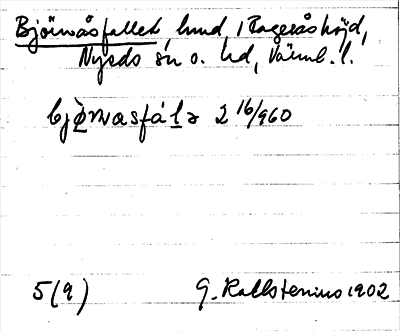 Björnåsfallet hmd i Rageråshöjd,
Nyeds sn o. hd, Värml. l.
bjɷ̀rnasfál̲a 2 16/960
5(9)
G. Kallstenius 1902